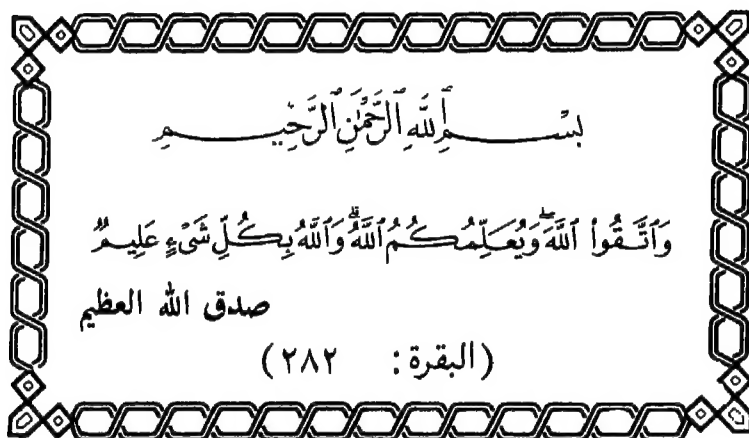 بِسْمِ ٱللَّهِ ٱلرَّحْمَٰنِ ٱلرَّحِيمِ
وَٱتَّقُوا۟ ٱللَّهَ ۖ وَيُعَلِّمُكُمُ ٱللَّهُ ۗ وَٱللَّهُ بِكُلِّ شَىْءٍ عَلِيمٌ
صدق الله العظيم
(البقرة: ٢٨٢)